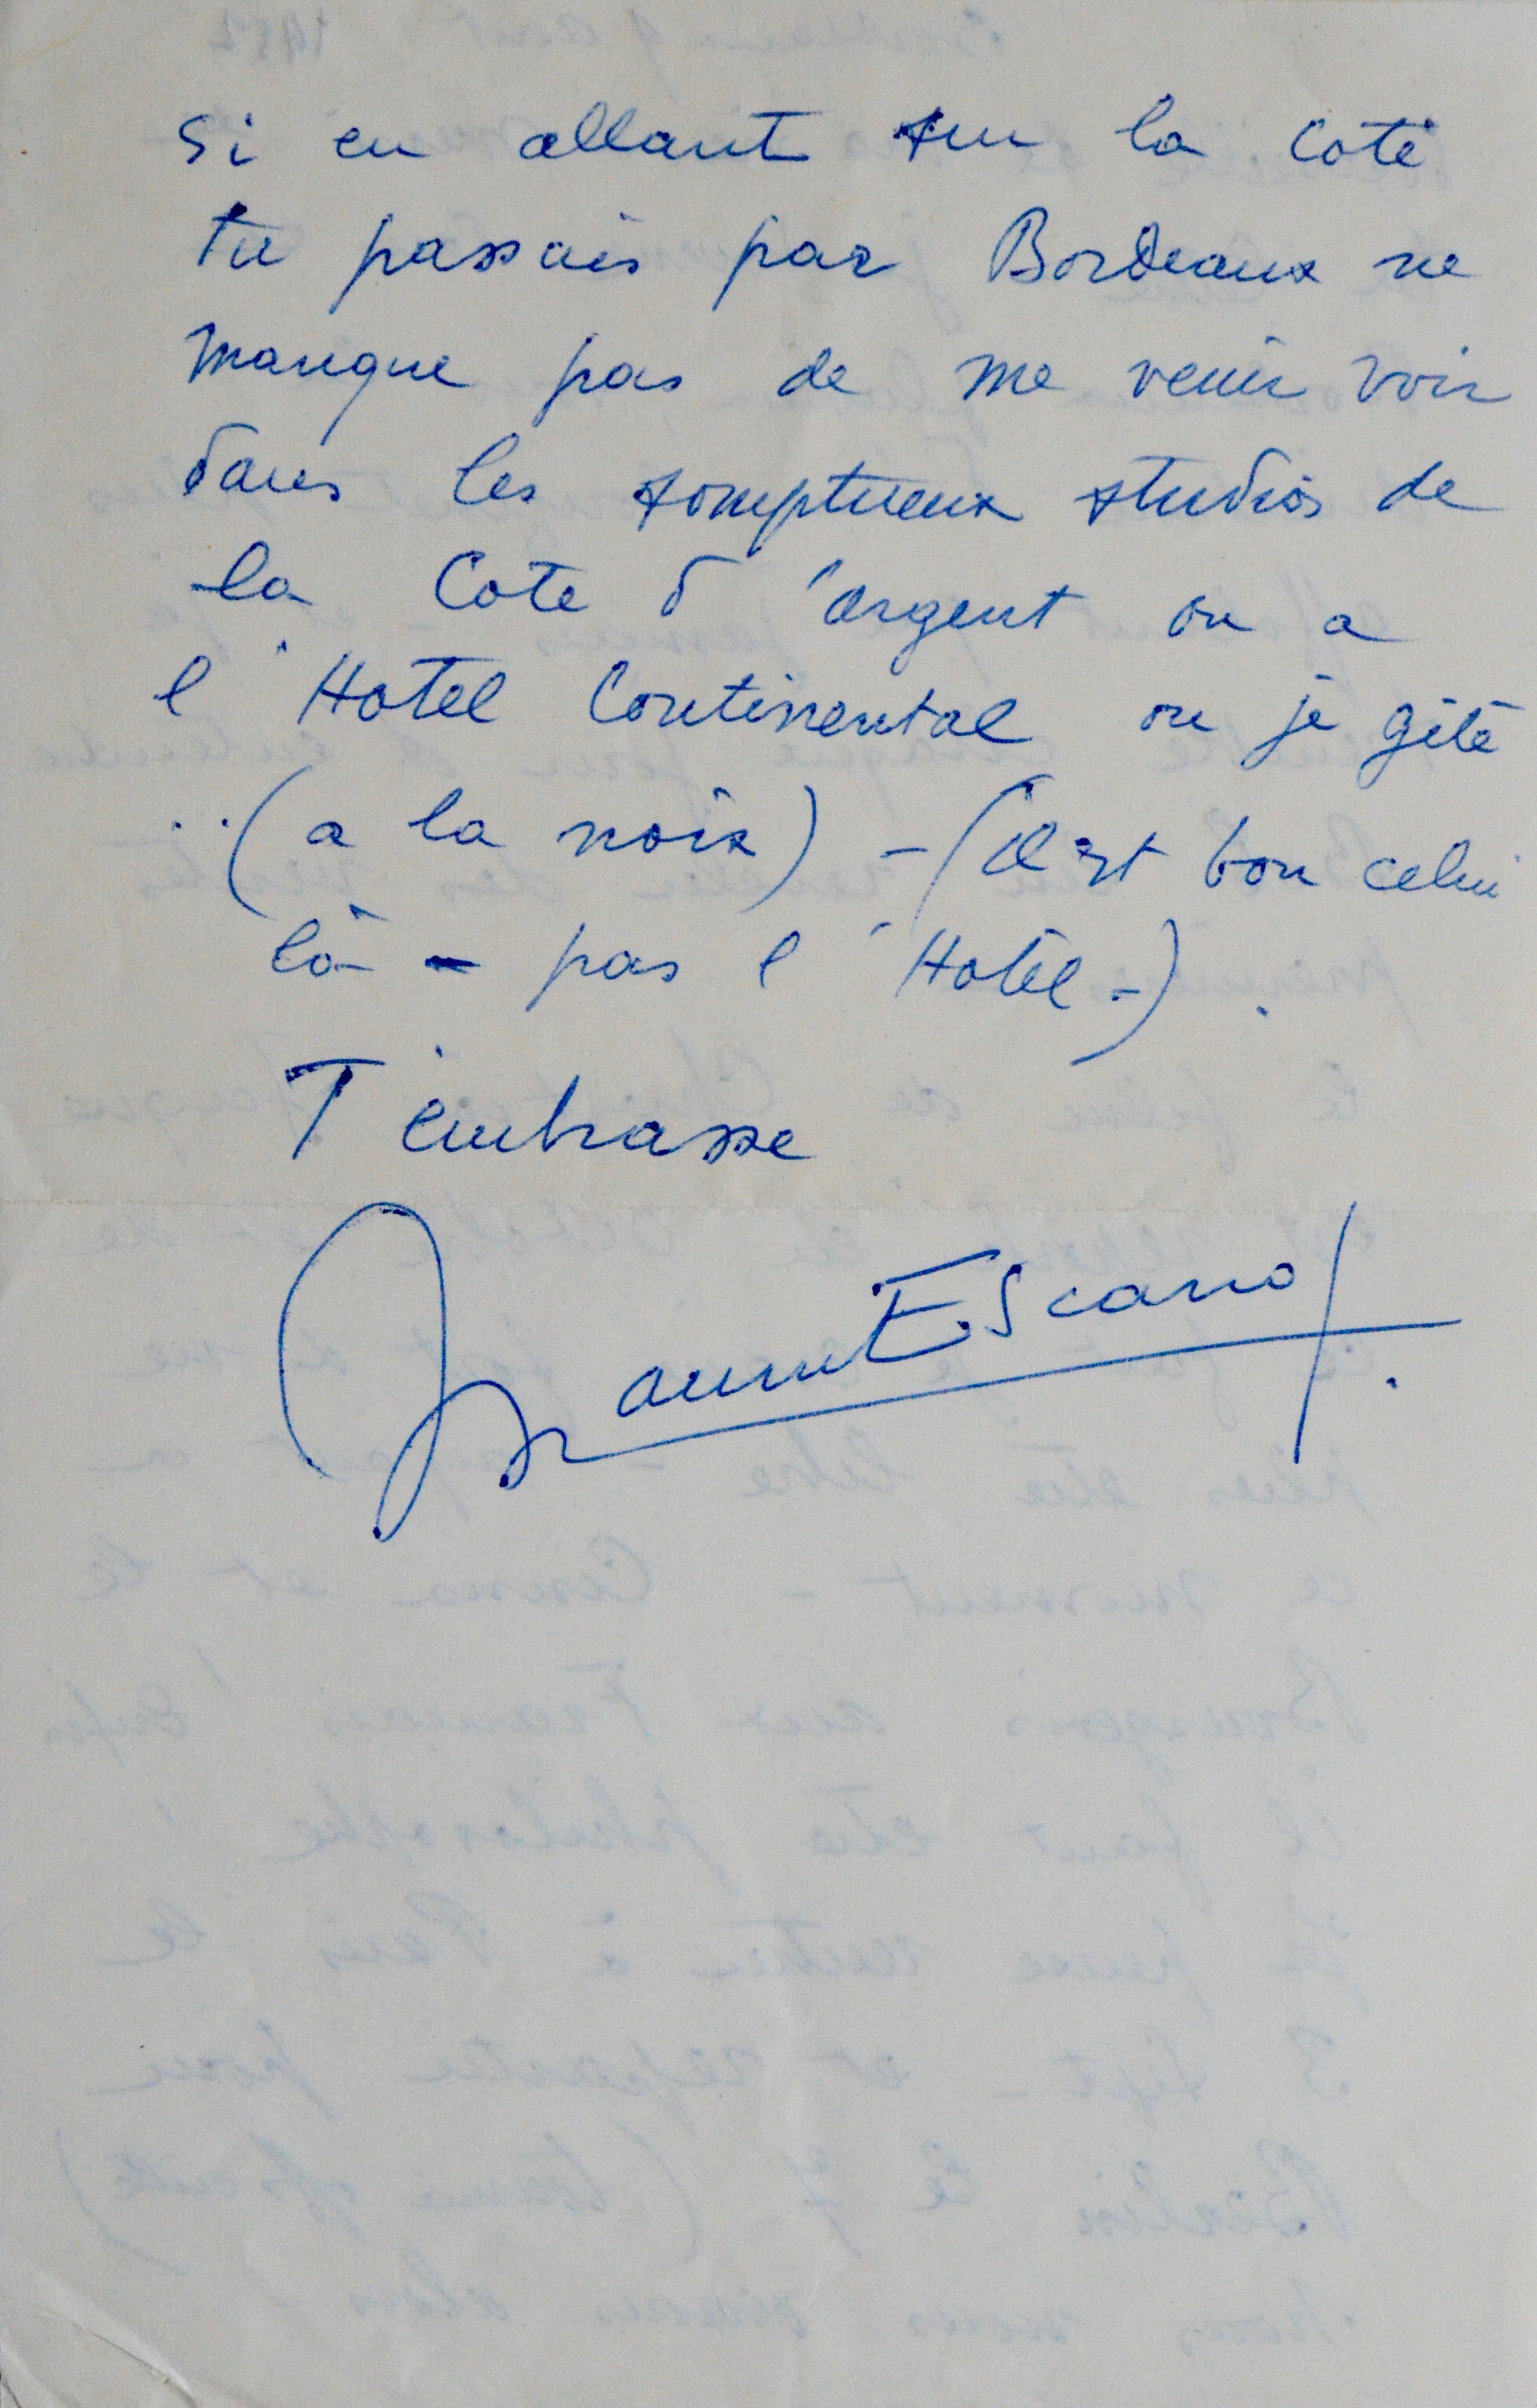 Si en allant sur la cote
tu passais par Bordeaux ne
manque pas de me venir voir
dans les somptueux studios de
la Cote d'argent ou a
l'Hotel Continental ou je gite
..(a la noix) - (il est bon celui
là - pas l'Hotel -).
T'embrasse
Escande